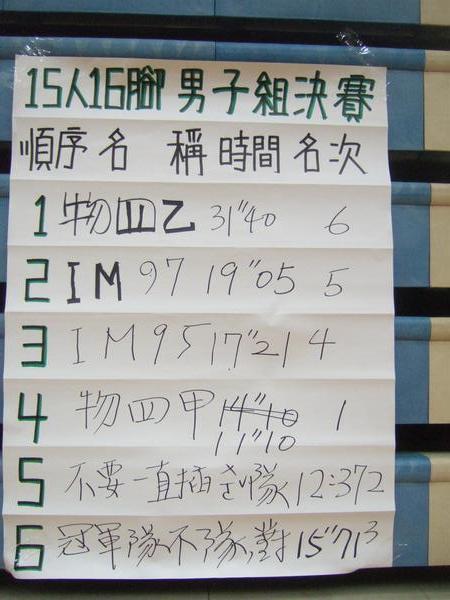 15人16腳 男子組決賽
順序 名 稱 時間 名次
1 物四乙 31"40 6
2 IM 97 19"05 5
3 IM 95 17"21 4
4 物四甲 14"10 1
11"10
5 不要一直插 隊 12:37 2
6 冠軍隊不隊 15"71 3